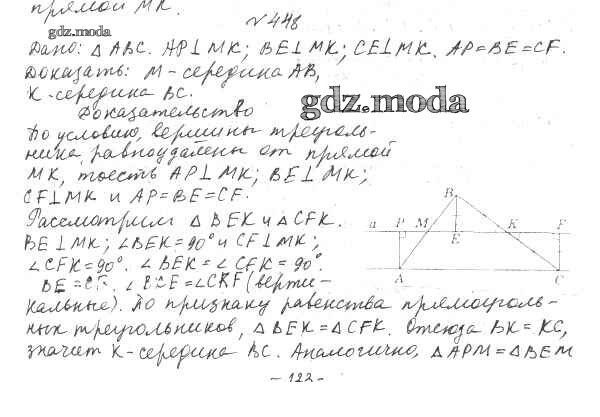 прямой МК.
gdz.moda
№448
Дано: △ ABC. AP⊥MK; BE⊥MK; CE⊥MK. AP=BE=CF.
Доказать: M-середина AB,
K-середина BC.
Доказательство
gdz.moda
По условию, вершины треуголь-
ника равноудалены от прямой
МК, тоесть AP⊥MK; BE⊥MK;
CF⊥MK и AP=BE=CF.
Рассмотрим △ BEK и △CFK.
BE⊥MK; ∠BEK=90° и CF⊥MK;
∠CFK=90°. ∠BEK=∠CFK=90°.
BE=CF. =∠CKF (верти-
кальные). По признаку равенства прямоуголь-
ных треугольников, △BEK=△CFK. Отсюда BK=KC,
значит K-середина BC. Аналогично, △APM=△BEM
a P M B E K F
A C
-122-